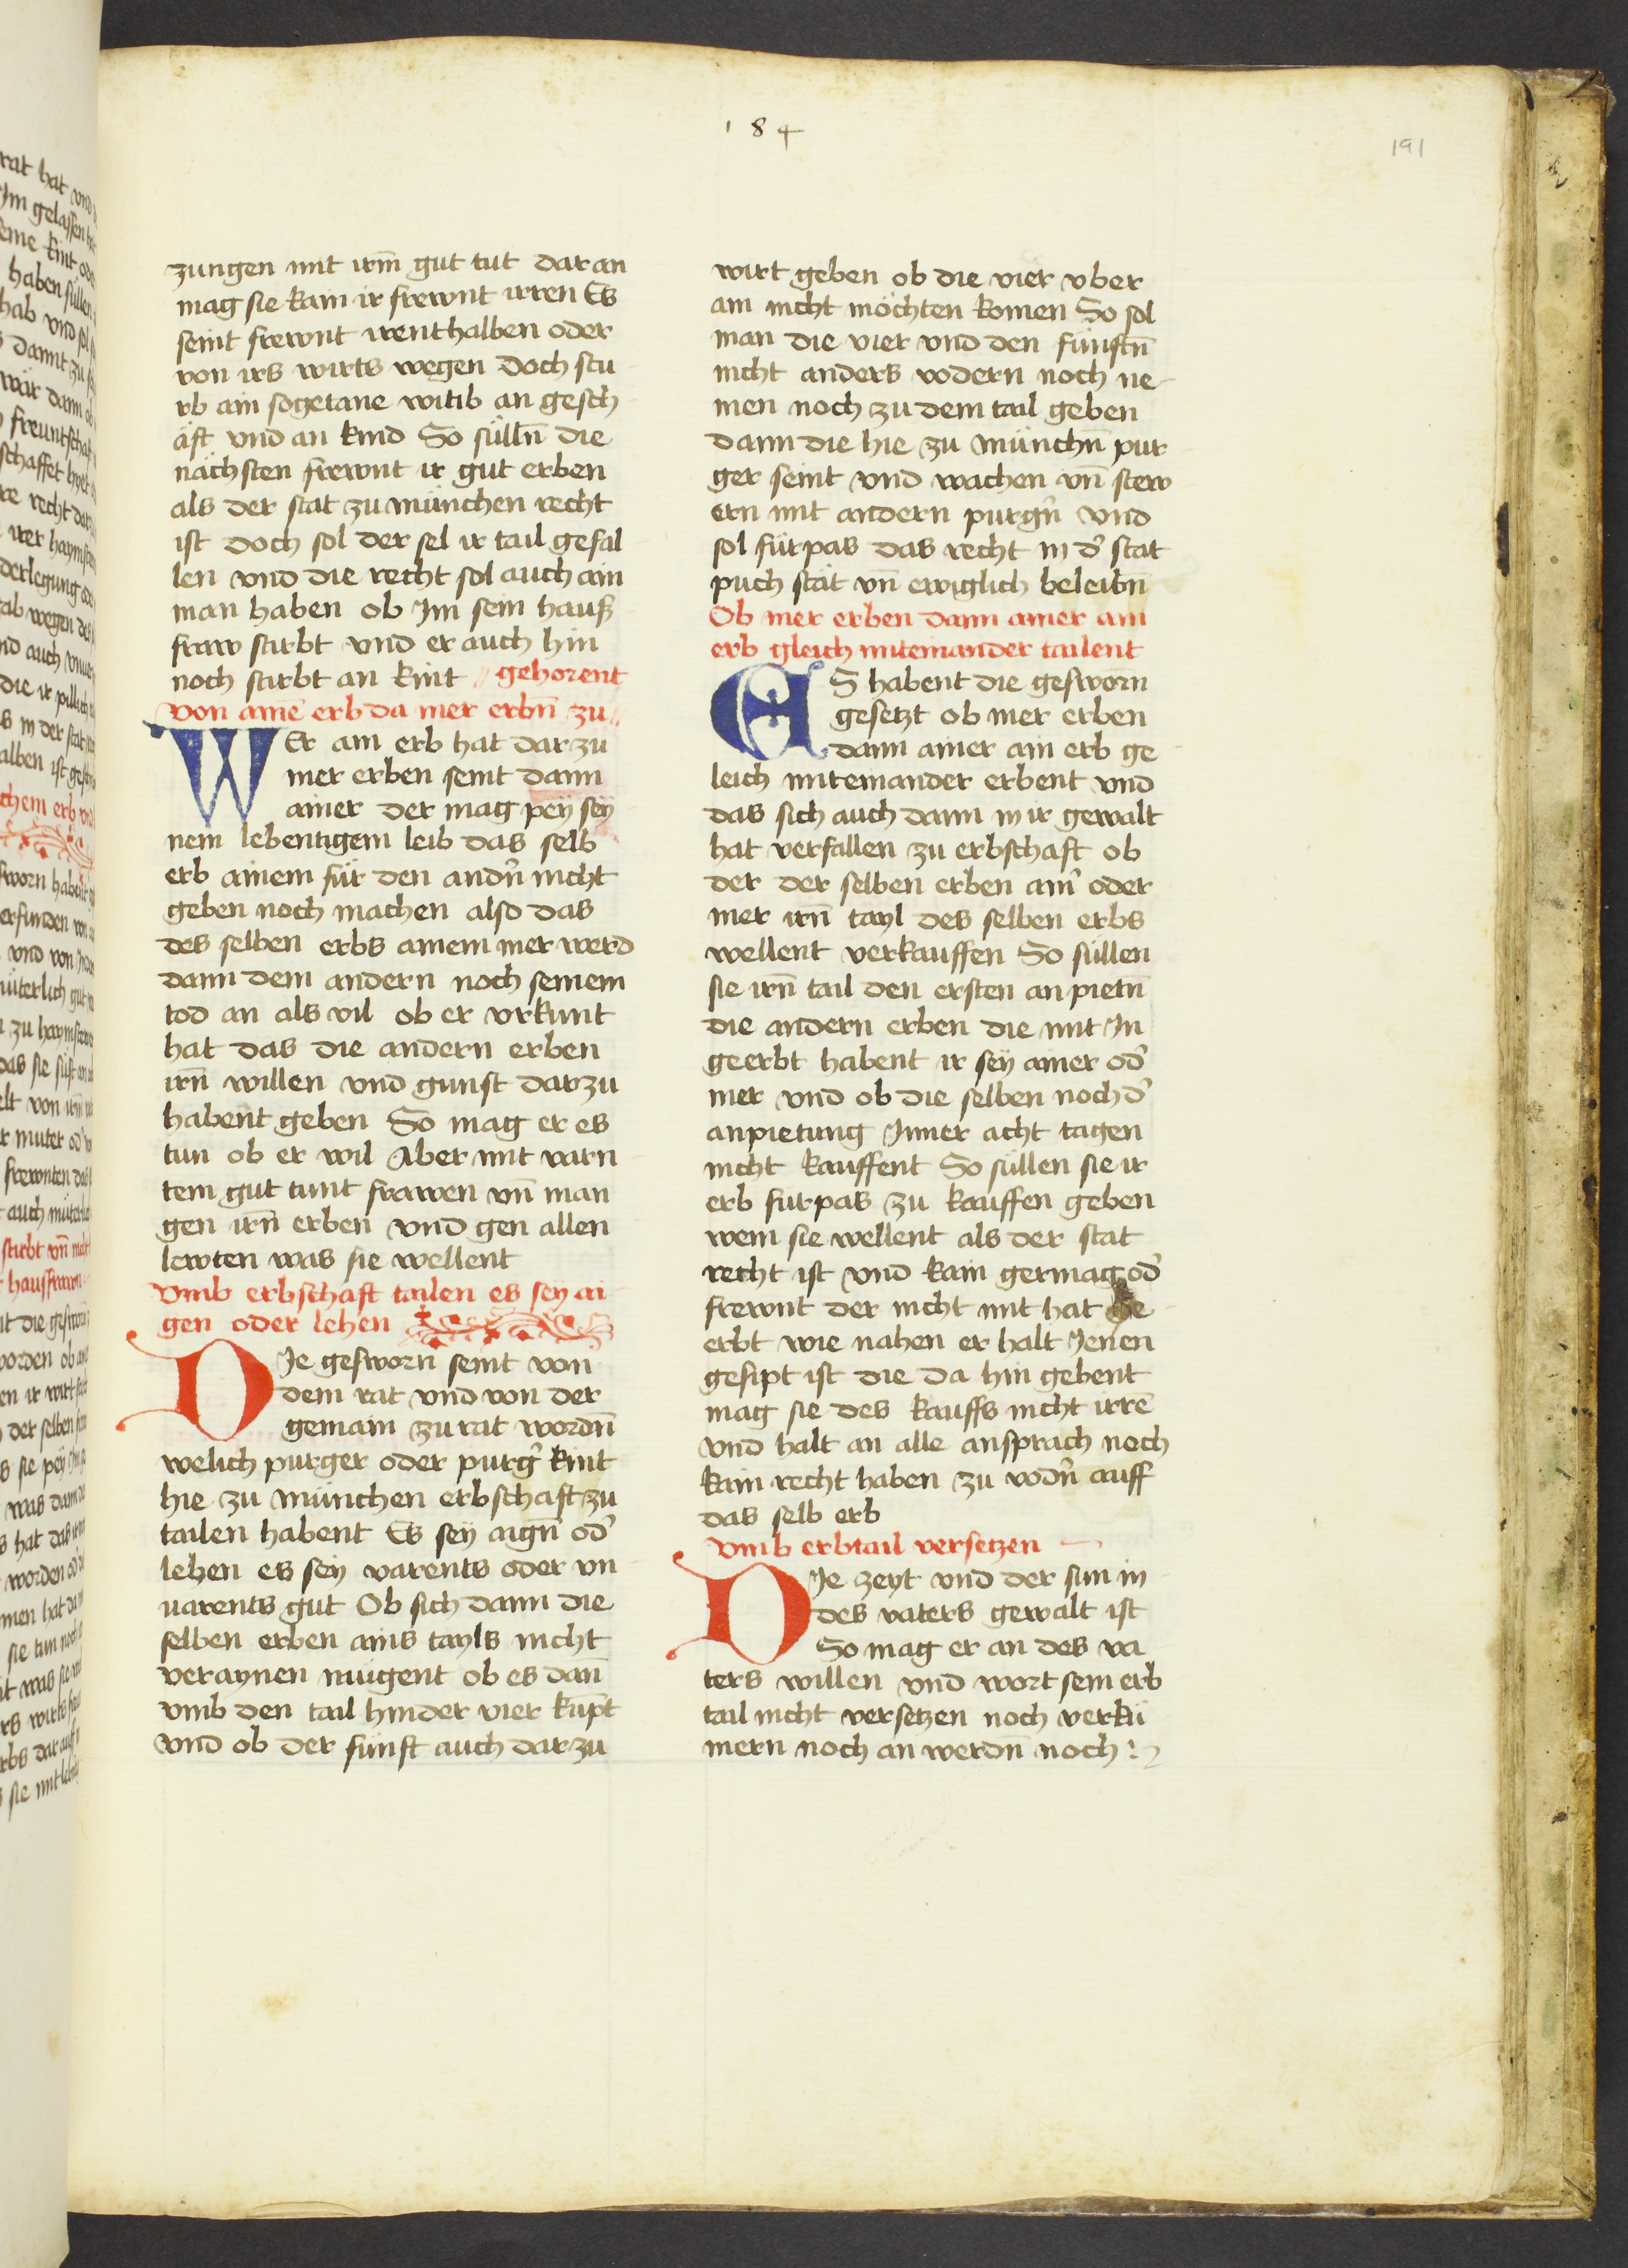 184
191
zungen mit irm̄ gut tut dar an
mag sie kain ir frewnt irren Es
seint frewnt irenthalben oder
von irs wirts wegen Doch stu
rb ain sogetane witib an gesch
äft vnd an kind So sülln̄ die
nächsten frewnt ir gut erben
als der stat zu münchen recht
ist Doch sol der sel ir tail gefal
len vnd die recht sol auch ain
man haben ob Im sein hauß
fraw stirbt vnd er auch hin
noch stirbt an kint // gehorent
von aineͫ erb da mer erbn̄ zu //
WEr ain erb hat dar zu
mer erben seint dann
ainer der mag peÿ seÿ
nem lebentigem leib das selb
erb ainem für den andn̄ nicht
geben noch machen also das
des selben erbs ainem mer werd
dann dem andern noch seinem
tod an als vil ob er vrkunt
hat das die andern erben
irn̄ willen vnd gunst darzu
habent geben So mag er es
tun ob er wil Aber mit varn
tem gut tunt frawen vn̄ man
gen irn̄ erben vnd gen allen
lewten was sie wellent
vmb erbschaft tailen es seÿ ai
gen oder lehen
DIe gesworn seint von
dem rat vnd von der
gemain zu rat wordn̄
welich purger oder purg̉ kint
hie zu münchen erbschaft zu
tailen habent Es seÿ aign̄ od̉
lehen es seÿ varents oder vn
uarents gut Ob sich dann die
selben erben ains tayls nicht
veraynen mügent ob es dan̄
vmb den tail hinder vier kūpt
vnd ob der fünft auch dar zu
wirt geben ob die vier vber
ain nicht möchten komen So sol
man die vier vnd den fünftn̄
nicht anders vodern noch ne
men noch zu dem tail geben
dann die hie zu münchn̄ pur
ger seint vnd wachen vn̄ stew
ern mit andern purgn̉ vnd
sol fürpas das recht in d̉ stat
puch stät vn̄ ewiglich beleibn̄
Ob mer erben dann ainer ain
erb gleich miteinander tailent
ES habent die gesworn
gesetzt ob mer erben
dann ainer ain erb ge
leich miteinander erbent vnd
das sich auch dann in ir gewalt
hat verfallen zu erbschaft ob
der der selben erben ain̉ oder
mer irn̄ tayl des selben erbs
wellent verkauffen So süllen
sie irn̄ tail den ersten an pietn̄
die andern erben die mit In
geerbt habent ir seÿ ainer od̉
mer vnd ob die selben noch d̉
anpietung Inner acht tagen
nicht kauffent So süllen sie ir
erb furpas zu kauffen geben
wem sie wellent als der stat
recht ist vnd kain germag od̉
frewnt der nicht mit hat ge
erbt wie nahen er halt Jenen
gesipt ist die da hin gebent
mag sie des kauffs nicht irrē
vnd halt an alle ansprach noch
kain recht haben zu vodn̉ auff
das selb erb
vmb erbtail versetzen
DIe zeyt vnd der sun in
des vaters gewalt ist
So mag er an des va
ters willen vnd wort sein erb
tail nicht versetzen noch verkü
mern noch an werdn̄ noch :